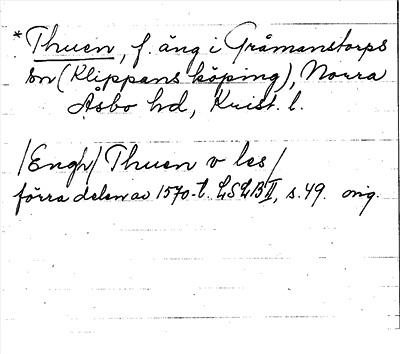 * Thuen, f. äng i Gråmanstorps
sn (Klippans köping), Norra
Åsbo hd, Krist. l.
/Engh/ Thuen v les/
förra delen av 1570-t. LSLB II, s. 49. orig.